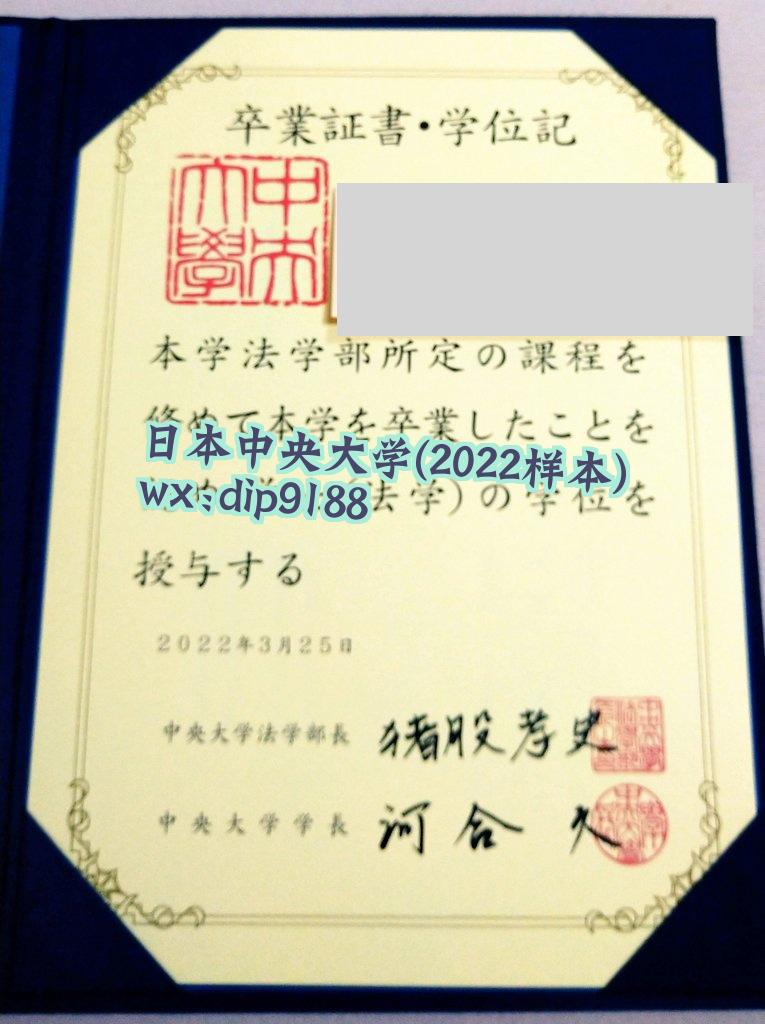 卒業証書・学位記
中央
大學
本学法学部所定の課程を
修めて本学を卒業したことを
日本中央大学(2022样本)
wx:dip9188
(法学)の学位を
授与する
2022年3月25日
中央大学法学部長 猪股孝史
中央大学学長 河合久